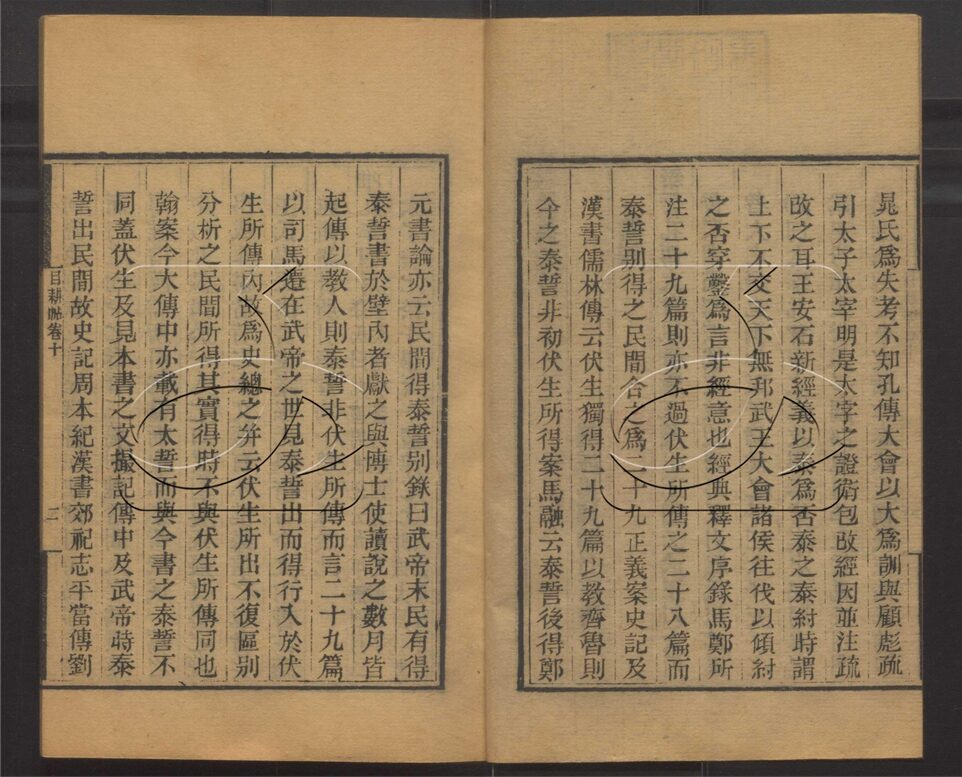 晁氏爲失考不知孔傳大會以大爲訓與顧彪疏
引太子太宰明是太字之證衛包改經因並注疏
改之耳王安石新經義以泰爲否泰之泰紂時謂
上下不交天下無邦武王大會諸侯往伐以傾紂
之否穿鑿爲言非經意也經典釋文序錄馬鄭所
注二十九篇則亦不過伏生所傳之二十八篇而
泰誓别得之民間合之爲二十九正義案史記及
漢書儒林傳云伏生獨得二十九篇以教齊魯則
今之泰誓非初伏生所得案馬融云泰誓後得鄭
元書論亦云民間得泰誓别錄曰武帝末民有得
泰誓書於壁內者獻之與博士使讀說之數月皆
起傳以教人則泰誓非伏生所傳而言二十九篇
以司馬遷在武帝之世見泰誓出而得行入於伏
生所傳內故爲史總之并云伏生所出不復區别
分析之民間所得其實得時不與伏生所傳同也
翰案今大傳中亦載有太誓而與今書之泰誓不
同蓋伏生及見本書之文撮記傳中及武帝時泰
誓出民間故史記周本紀漢書郊祀志平當傳劉
目耕帖卷十
二